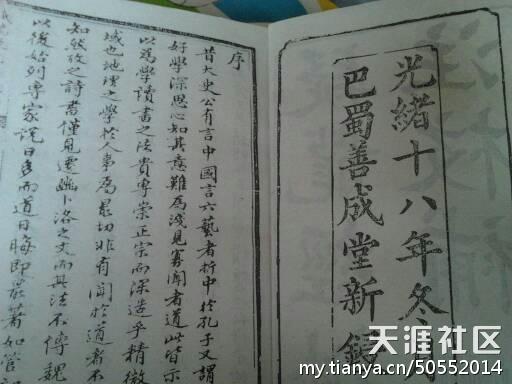 光緒十八年冬
巴蜀善成堂新
序
昔大史公有言中國言六藝者折中於孔子又謂
好學深思心知其意難為淺見寡聞者道此皆示
以為學讀書之法貴專崇正宗而深造乎精微
域也地理之學於人事為最切非有聞於道者不
知然攷之詩書僅見遷豳卜洛之文而其法不傳魏
以後始列專家說日多而道日晦即最著如管
天涯社区
my.tianya.cn/50552014